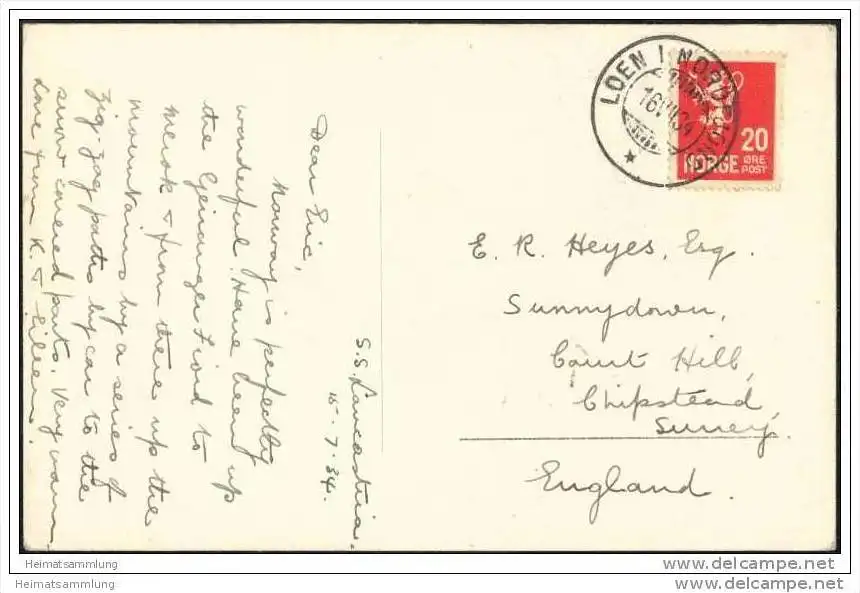 S.S. Lancastria.
15-7-34.
Dear Eric,
Norway is perfectly
wonderful. Have been up
the Geiranger Fiord to
Merok & from there up the
mountains by a series of
zig-zag paths by car to the
snow covered parts. Very warm
Love from K. & Eileen.
LOEN I NORDFJORD
16 VII 34
20
NORGE ØRE
POST
E. R. Heyes, Esq.
Sunnydown,
Court Hill,
Chipstead,
Surrey.
England.
Heimatsammlung
Heimatsammlung
delcampe.net
delcampe.net